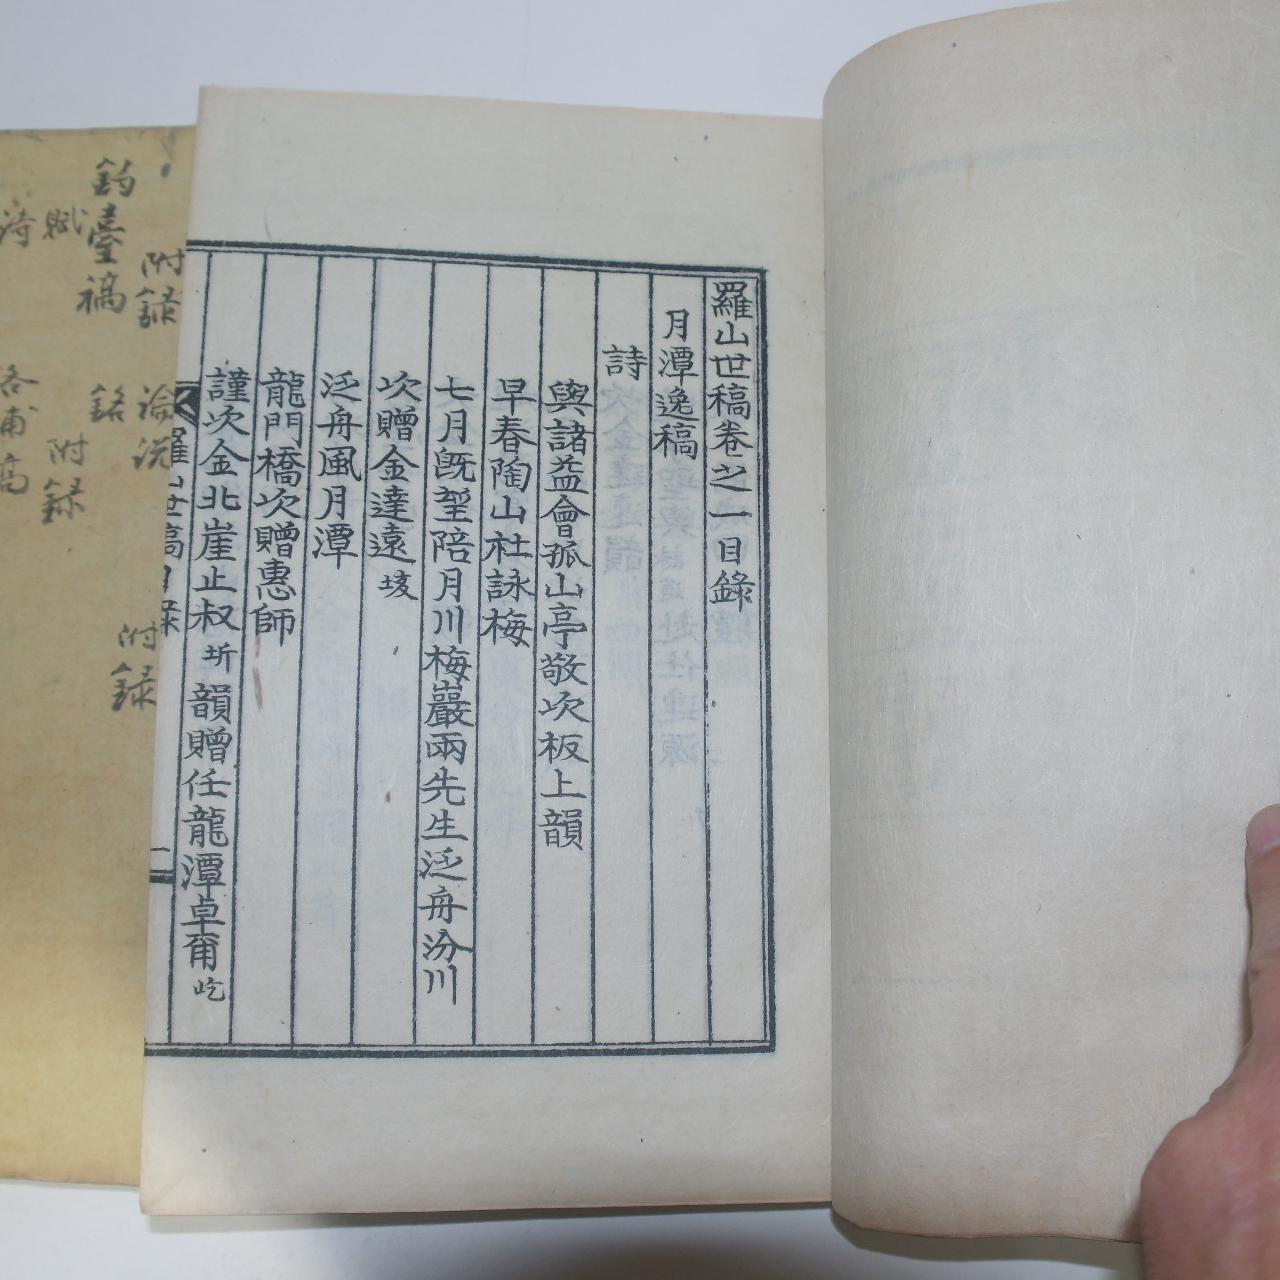 羅山世稿卷之一目錄
月潭逸稿
詩
與諸益會孤山亭敬次板上韻
早春陶山社詠梅
七月旣望陪月川梅巖兩先生泛舟汾川
次贈金達遠 垓
泛舟風月潭
龍門橋次贈惠師
謹次金北崖止叔 圻 韻贈任龍潭卓爾 屹
羅山世稿目錄
一
附録
論說
附録
釣臺稿
銘
賦
附録
詩